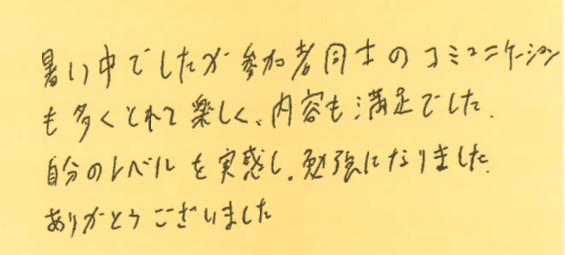 暑い中でしたが参加者同士のコミュニケーション
も多くとれて楽しく、内容も満足でした。
自分のレベルを実感し、勉強になりました。
ありがとうございました